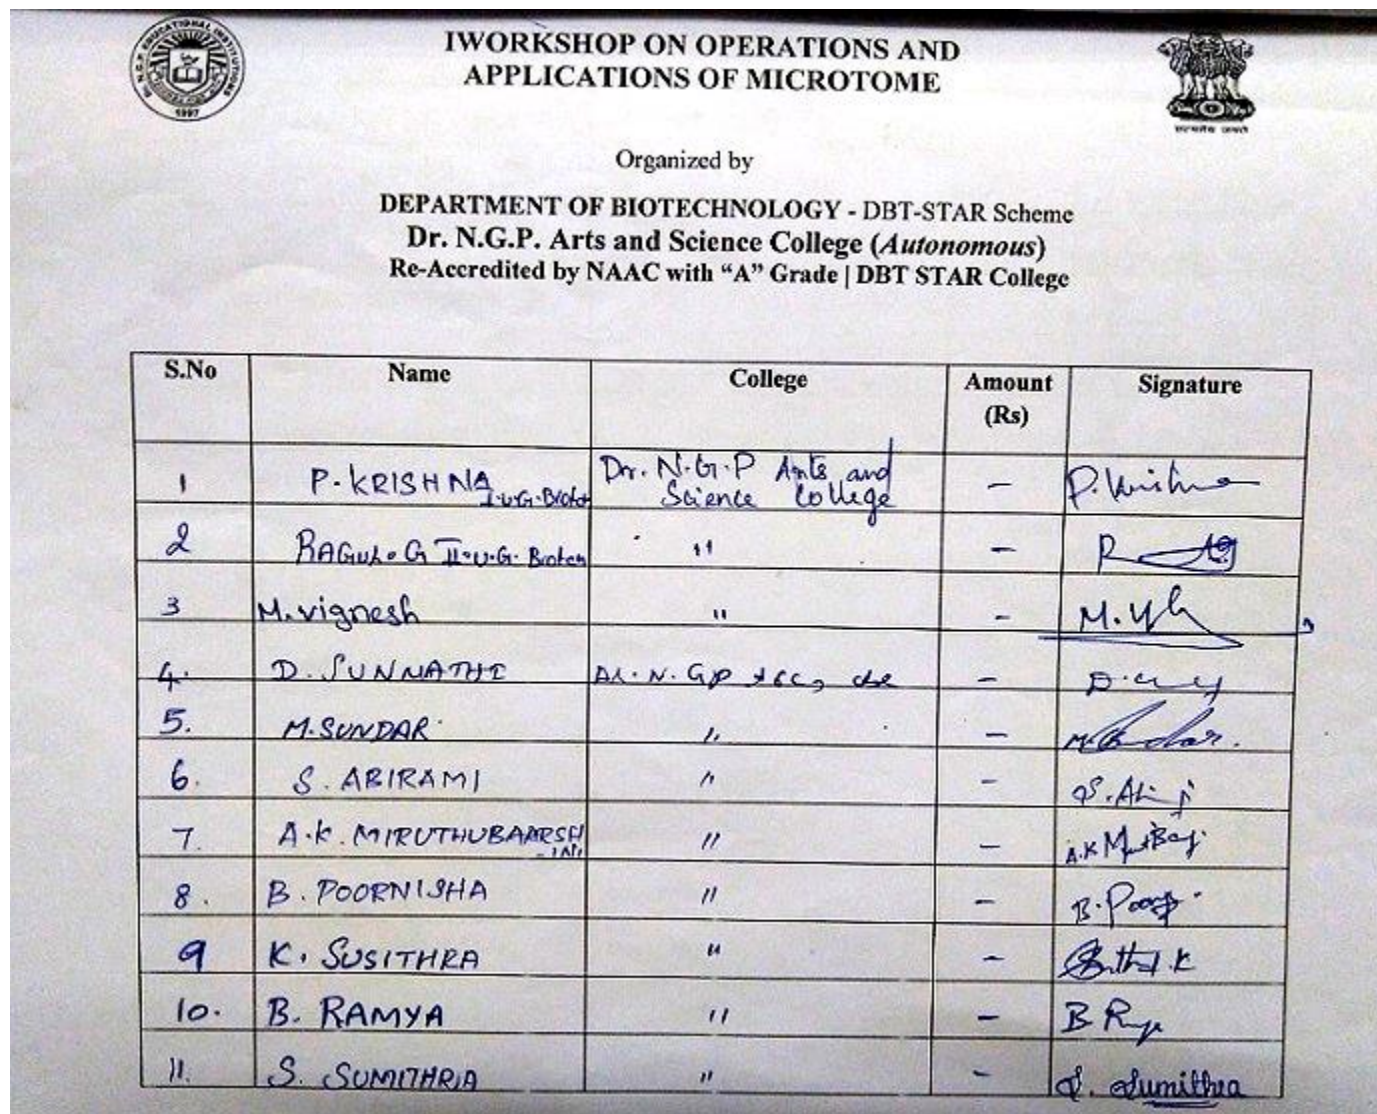 IWORKSHOP ON OPERATIONS AND
APPLICATIONS OF MICROTOME
1997
सत्यमेव जयते
Organized by
DEPARTMENT OF BIOTECHNOLOGY - DBT-STAR Scheme
Dr. N.G.P. Arts and Science College (Autonomous)
Re-Accredited by NAAC with “A” Grade | DBT STAR College
S.No Name College Amount (Rs) Signature
1 P. KRISHNA I-U.G-Biotec Dr. N.G.P Arts and Science College - P. Krishna
2 RAGUL. G II-U.G. Biotech " - R
3 M. vignesh " - M.
4. D. SUNNATHI Dr. N. GP ASC, cbe - D.
5. M. SUNDAR " - M. Sundar.
6. S. ABIRAMI " - S. Abi
7. A.K. MIRUTHUBAARSHINI " - A.K
8. B. POORNISHA " - B. Poor
9 K. SUSITHRA " - K
10. B. RAMYA " - B
11. S. SUMITHRA " - S. Sumithra